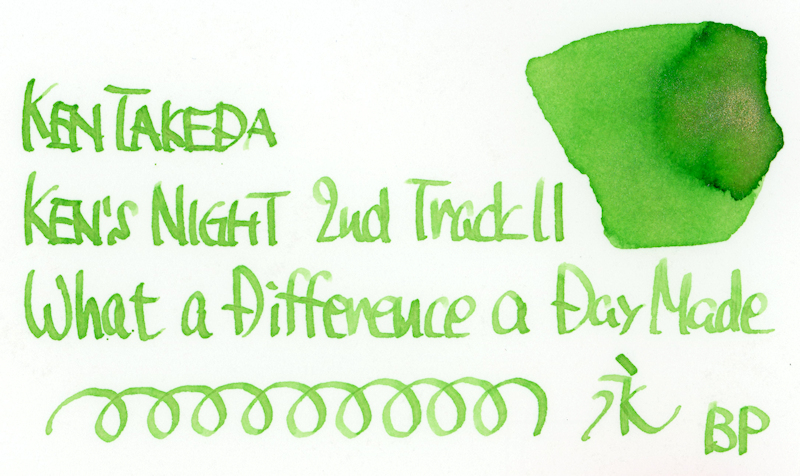 KEN TAKEDA
KEN'S NIGHT 2nd Track 11
What a Difference a Day Made
永 BP